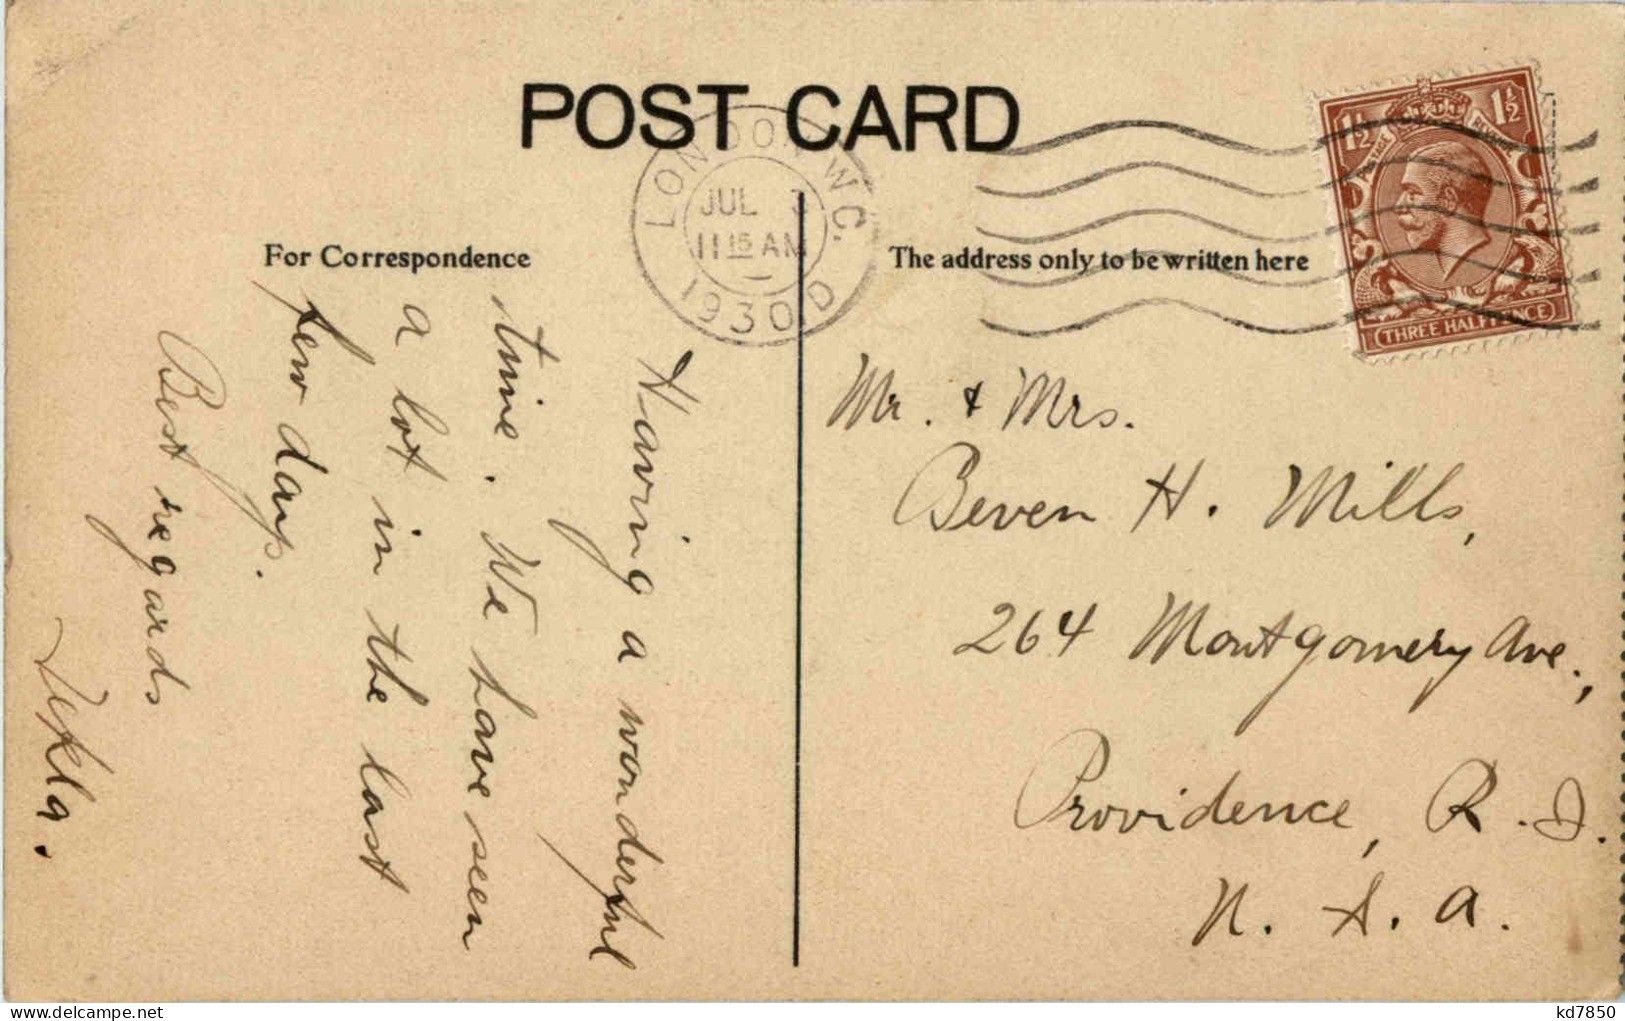 POST CARD
LONDON W.C.
JUL 3
11 15 AM
1930 D
1½ 1½
POSTAGE REVENUE
THREE HALFPENCE
For Correspondence
The address only to be written here
Having a wonderful
time. We have seen
a lot in the last
few days.
Best regards
Tekla.
Mr. & Mrs.
Beven H. Mills,
264 Montgomery Ave.,
Providence, R. I.
U. S. A.
kd7850